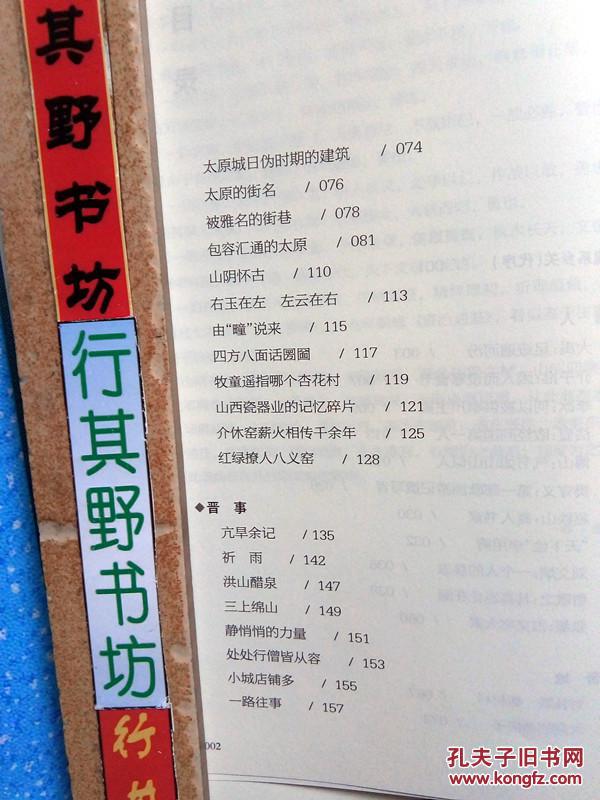 其野书坊
行其野书坊
行其
太原城日伪时期的建筑 / 074
太原的街名 / 076
被雅名的街巷 / 078
包容汇通的太原 / 081
山阴怀古 / 110
右玉在左 左云在右 / 113
由“疃”说来 / 115
四方八面话圐圙 / 117
牧童遥指哪个杏花村 / 119
山西瓷器业的记忆碎片 / 121
介休窑薪火相传千余年 / 125
红绿撩人八义窑 / 128
◆晋 事
亢旱余记 / 135
祈 雨 / 142
洪山醋泉 / 147
三上绵山 / 149
静悄悄的力量 / 151
处处行僧皆从容 / 153
小城店铺多 / 155
一路往事 / 157
002
孔夫子旧书网
www.kongfz.com